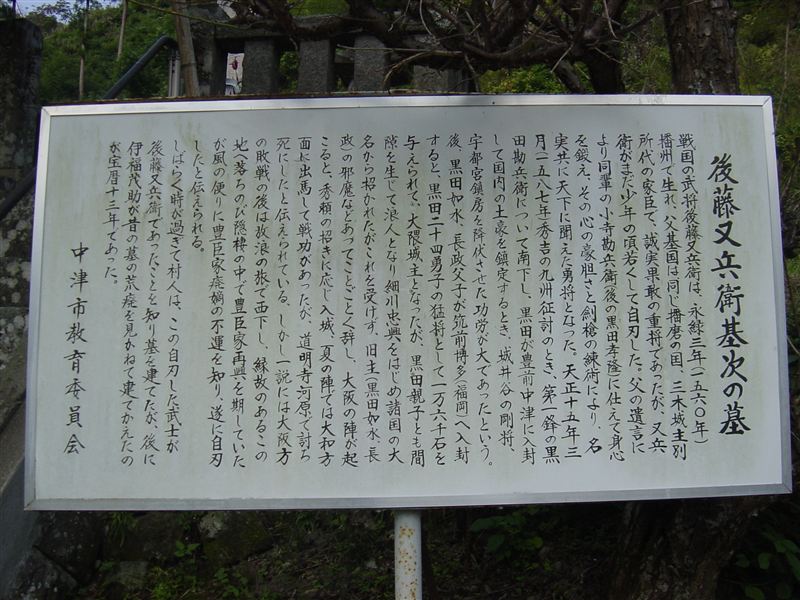 後藤又兵衛基次の墓
戦国の武将後藤又兵衛は、永緑三年(一五六〇年)
播州で生れ、父基国は同じ播磨の国、三木城主別
所代の家臣で、誠実果敢の重将であったが、又兵
衛がまだ少年の頃若くして自刃した。父の遺言に
より同輩の小寺勘兵衛後の黒田孝隆に仕えて身心
を鍛え、その心の豪胆さと剣槍の練術により、名
実共に天下に聞えた勇将となった。天正十五年三
月(一五八七年)秀吉の九州征討のとき、第一鋒の黒
田勘兵衛について南下し、黒田が豊前中津に入封
して国内の土豪を鎮定するとき、城井谷の剛将、
宇都宮鎮房を降伏させた功労が大であったという。
後、黒田如水、長政父子が筑前博多(福岡)へ入封
すると、黒田二十四勇子の猛将として一万六千石を
与えられて、大隈城主となったが、黒田親子とも間
隙を生じて浪人となり細川忠興をはじめ諸国の大
名から招かれたがこれを受けず、旧主(黒田如水、長
政の邪魔などあってことごとく辞し、大阪の陣が起
こると、秀頼の招きに応じ入城、夏の陣では大和方
面に出馬して戦功があったが、道明寺河原で討ち
死にしたと伝えられている。しかし一説には大阪方
の敗戦の後は放浪の旅で西下し、縁故のあるこの
地へ落ちのび隠棲の中で豊臣家再興を期していた
が風の便りに豊臣家廃嫡の不運を知り、遂に自刃
したと伝えられる。
しばらく時が過ぎて村人は、この自刃した武士が
後藤又兵衛であったことを知り墓を建てたが、後に
伊福茂助が昔の墓の荒廃を見かねて建てかえたの
が宝暦十三年であった。
中津市教育委員会